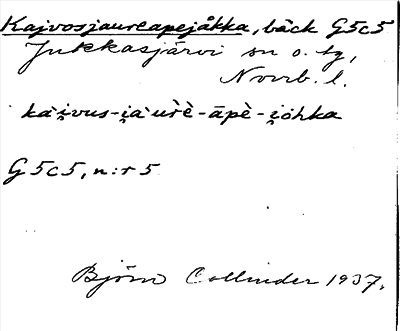 Kajvosjaureapejåkka, bäck G5c5
Jukkasjärvi sn o. tg,
Norrb. l.
kàivus-i̯àurè̀-āpè-i̯óhka
G5c5, n:r 5
Björn Collinder 1937.